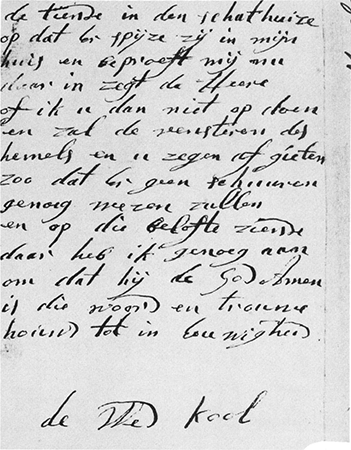 de tiende in den schathuize
op dat er spyze zy in mijn
huis en beproeft mij nu
daar in zegt de Heere
of ik u dan niet op doen
en zal de vensteren des
hemels en u zegen af gieten
zoo dat er geen schuuren
genoeg wezen zullen
en op die belofte ziende
daar heb ik genoeg aan
om dat hij de God Amen
is die woord en trouwe
houwd tot in eeuwigheid
de Wed Kool